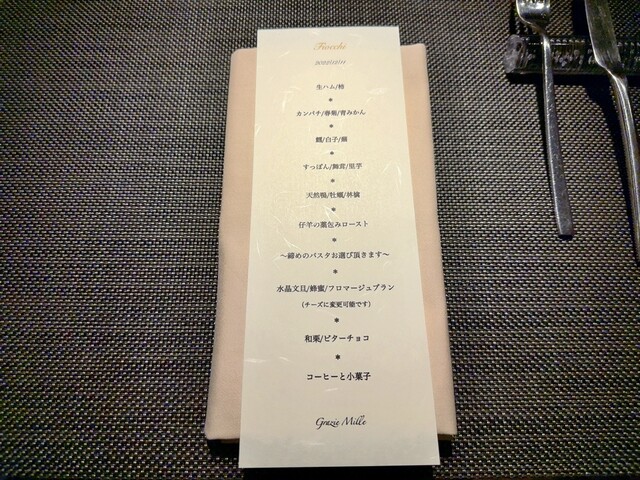 Fiocchi
2022/12/11
生ハム/柿
*
カンパチ/春菊/青みかん
*
鱈/白子/蕪
*
すっぽん/舞茸/里芋
*
天然鴨/牡蠣/林檎
*
仔羊の藁包みロースト
*
〜締めのパスタお選び頂きます〜
*
水晶文旦/蜂蜜/フロマージュブラン
(チーズに変更可能です)
*
和栗/ビターチョコ
*
コーヒーと小菓子
Grazie Mille